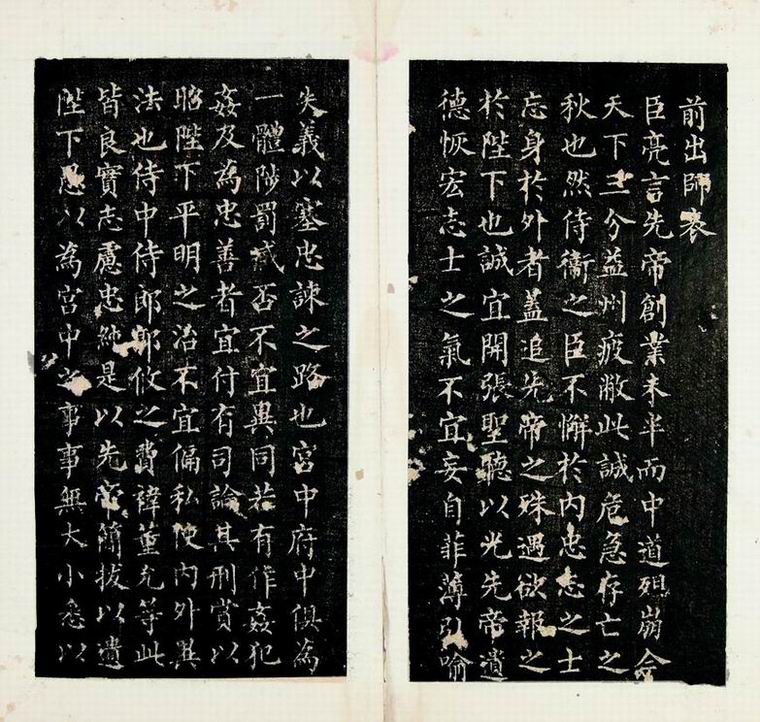 前出師表
臣亮言先帝創業未半而中道殂崩今
天下三分益州疲敝此誠危急存亡之
秋也然侍衛之臣不懈於内忠志之士
忘身於外者蓋追先帝之殊遇欲報之
於陛下也誠宜開張聖聽以光先帝遺
德恢宏志士之氣不宜妄自菲薄引喻
失義以塞忠諫之路也宮中府中俱為
一體陟罰臧否不宜異同若有作姦犯
姦及為忠善者宜付有司論其刑賞以
昭陛下平明之治不宜偏私使内外異
法也侍中侍郎郭攸之費禕董允等此
皆良實志慮忠純是以先帝簡拔以遺
陛下愚以為宮中之事事無大小悉以